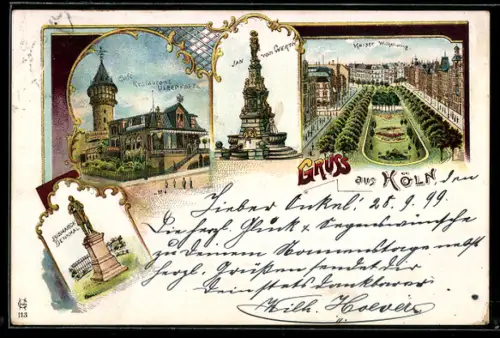 Café
Restaurant
JAN VON WERTH
Kaiser Wilh.-ring
BISMARCK
DENKMAL
GRUSS
aus KÖLN, den
Lieber Onkel! 28.9.99.
Die herzl. Glück & Segenswünsche
zu deinem Namenstage nebst
herzl. Grüßen sendet dir
dein stets dankbarer
Wilh. Hoever
113